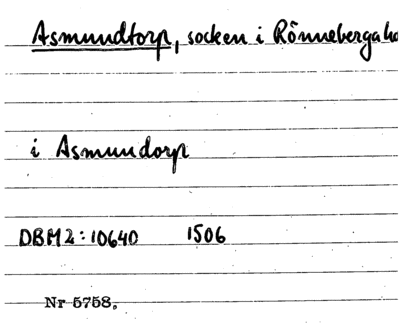 Asmundtorp, socken i Rönnebergaha
i Asmundorp
DBM2:10640 1506
Nr 5758.